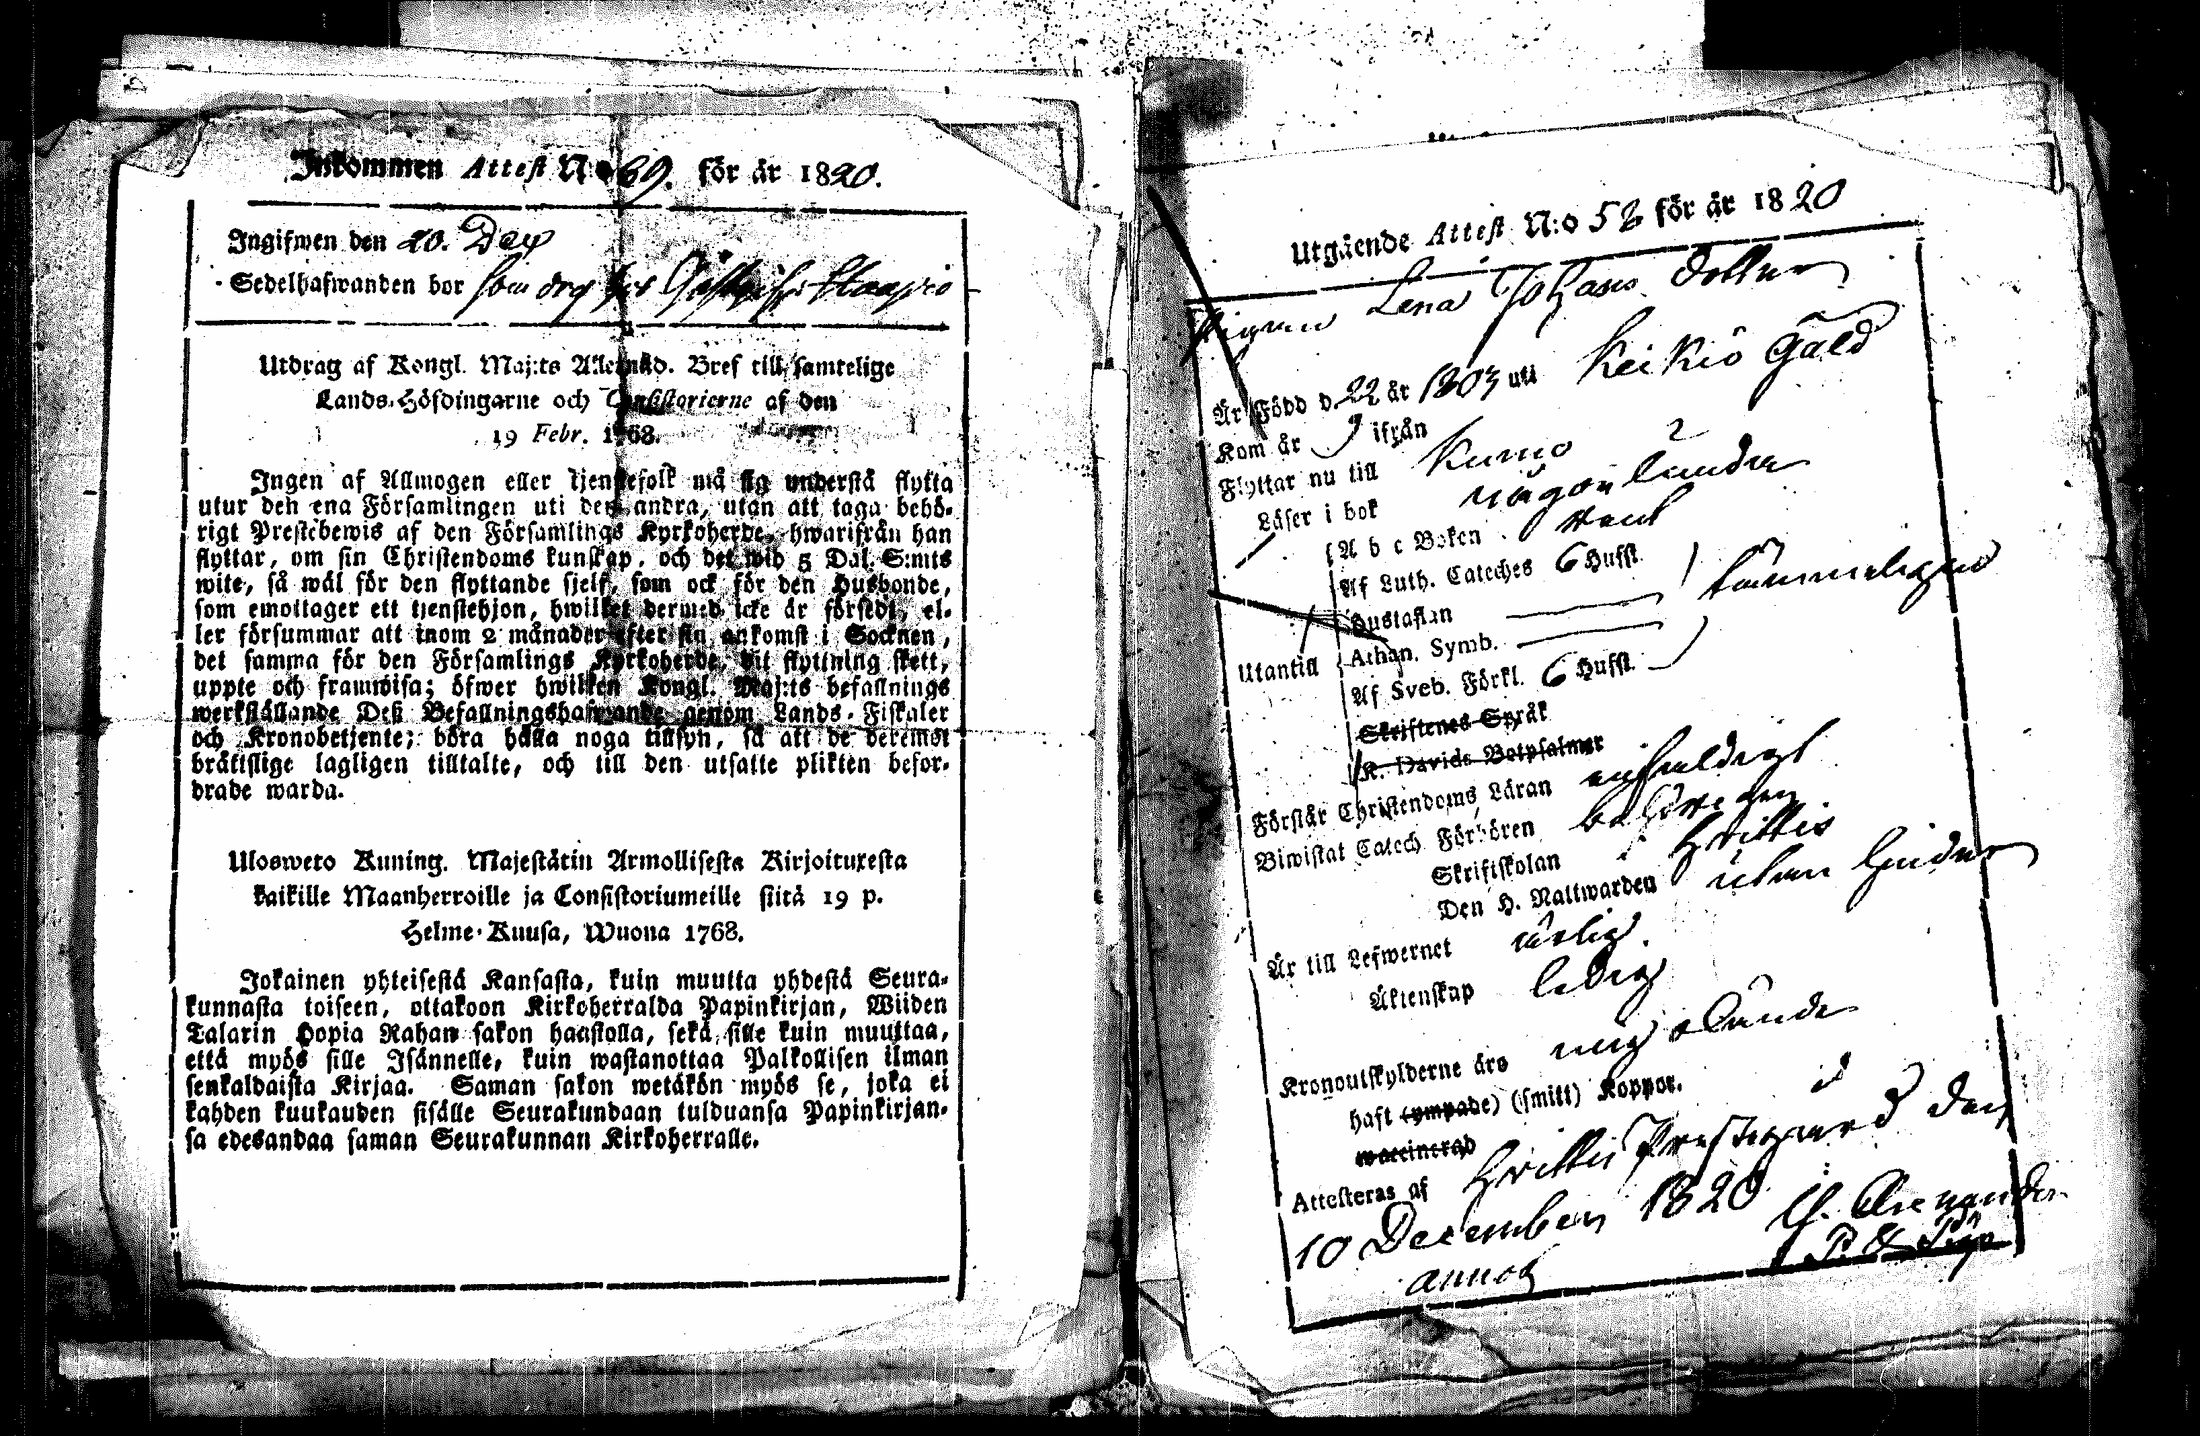 Inkommen Attest N:o 69. för år 1820.
Ingifwen den 20. Dec
Sedelhafwanden bor som drg hos
Utdrag af Kongl. Maj:ts Allernåd. Bref till samtelige
Lands-Höfdingarne och Consistorierne af den
19 Febr. 1768.
Ingen af Allmogen eller tjenstefolk må sig understå flytta
utur den ena Församlingen uti den andra, utan att taga behö-
rigt Prestebewis af den Församlings Kyrkoherde, hwarifrån han
flyttar, om sin Christendoms kunskap, och det wid 5 Dal. S:mts
wite, så wäl för den flyttande sjelf, som ock för den Husbonde,
som emottager ett tjenstehjon, hwilket dermed icke är försedt, el-
ler försummar att inom 2 månader efter sin ankomst i Socknen,
det samma för den Församlings Kyrkoherde, dit flyttning skett,
uppte och framwisa; öfwer hwilken Kongl. Maj:ts befallnings
werkställande Deß Befallningshafwande genom Lands-Fiskaler
och Kronobetjente; böra hålla noga tillsyn, så att de deremot
bråttslige lagligen tilltalte, och till den utsatte plikten befor-
drade warda.
Ulosweto Kuning. Majestätin Armollisesta Kirjoituxesta
kaikille Maanherroille ja Consistoriumeille siitä 19 p.
Helme-Kuusa, Wuona 1768.
Jokainen yhteisestä Kansasta, kuin muutta yhdestä Seura-
kunnasta toiseen, ottakoon Kirkoherralda Papinkirjan, Wiiden
Talarin Hopia Rahan sakon haastolla, sekä sille kuin muuttaa,
että myös sille Isännelle, kuin wastanottaa Palkollisen ilman
senkaldaista Kirjaa. Saman sakon wetäkön myös se, joka ei
kahden kuukauden sisälle Seurakundaan tulduansa Papinkirjan-
sa edesandaa saman Seurakunnan Kirkoherralle.
Utgående Attest N:o 58 för år 1820
Pigan Lena Johans dotter
Är Född d. 22 år 1803 uti Keikiö Gäld
Kom år ifrån
Flyttar nu till Kumo
Läser i bok någorlunda
A b c Boken rent
Af Luth. Cateches 6 Hufst.
Hustaflan
Utantill
Athan. Symb. tämmeligen
Af Sveb. Förkl. 6 Hufst.
Skriftenes Språk
K. Davids Botpsalmer
Förstår Christendoms Läran enfaldigt
Biwistat Catech Förhören
Skriftskolan i Hvittis
Den H. Nattwarden utan hinder
Är till Lefwernet ärlig
Äktenskap ledig
Kronoutskylderne äro mig okunde
haft (ympade) (smitt) Koppor.
waccinerad
Attesteras af Hvittis Prestegård den
10 December 1820